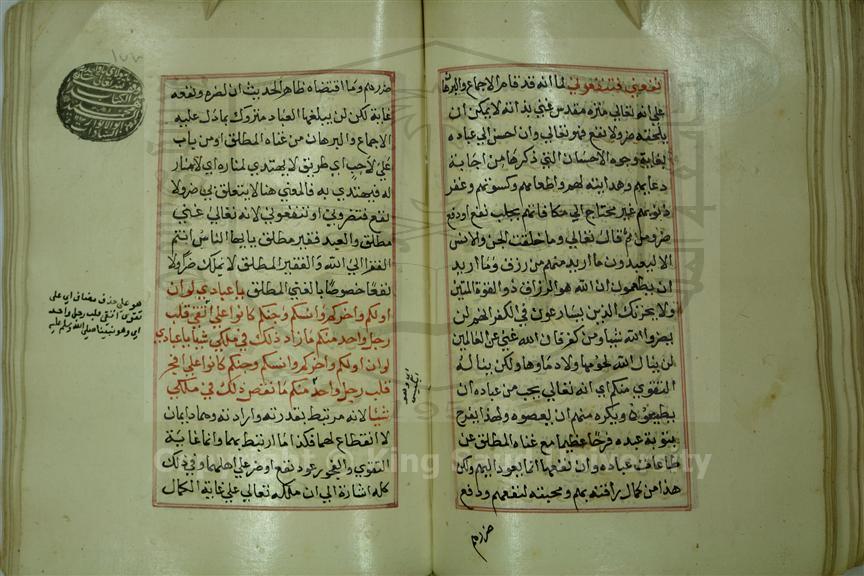 نفعوني فتنفعوني لما انه قد قام الاجماع والبرهان
علي انه تعالي منزه مقدس غني بذاته لا يمكن ان
يلحقه ضر ولا نفع فهو تعالي وان احسن الي عباده
بغاية وجوه الاحسان التي ذكرها من اجابة
دعايهم وهدايته لهم واطعامهم وكسوتهم وغفر
ذنوبهم غير محتاج الي مكافاتهم بجلب نفع او دفع
ضر ومن ثم قال تعالي وما خلقت الجن والانس
الا ليعبدون ما اريد منهم من رزق وما اريد
ان يطعمون ان الله هو الرزاق ذو القوة المتين
ولا يحزنك الذين يسارعون في الكفر انهم لن
يضروا الله شيا ومن كفر فان الله غني عن العالمين
لن ينال الله لحومها ولا دماوها ولكن يناله
التقوي منكم اي انه تعالي يحب من عباده ان
يطيعوه ويكره منهم ان يعصوه ولهذا يفرح
بتوبة عبده فرحا عظيما مع غناه المطلق عن
طاعات عباده وان نفعها انما يعود اليهم ولكن
هذا من كمال رافته بهم ومحبته لنفعهم ودفع
ضررهم
ضررهم وما اقتضاه ظاهر الحديث ان لضره ونفعه
غاية لكن لن يبلغها العباد متروك بما دل عليه
الاجماع والبرهان من غناه المطلق او من باب
علي لاحب اي طريق لا يهتدي لمناره اي لا منار
له فيهتدي به فالمعني هنا لا يتعلق بي ضر ولا
نفع فتضروني او تنفعوني لانه تعالي غني
مطلق والعبد فقير مطلق يايها الناس انتم
الفقرا الي الله والفقير المطلق لا يملك ضرا ولا
نفعا خصوصا بالغني المطلق يا عبادي لو ان
اولكم واخركم وانسكم وجنكم كانوا علي اتقي قلب
رجل واحد منكم ما زاد ذلك في ملكي شيا يا عبادي
لو ان اولكم واخركم وانسكم وجنكم كانوا علي افجر
قلب رجل واحد منكم ما نقص ذلك في ملكي
شيئا لانه مرتبط بقدرته وارادته وهما دايمان
لا انقطاع لهما فكذا ما ارتبط بهما وانما غاية
التقوي والفجور عود نفع او ضر علي اهلهما وفي ذلك
كله اشارة الي ان ملكه تعالي علي غاية الكمال
هو علي حذف مضاف اي علي
تقوي اتقي قلب رجل واحد
اي وهو نبينا صلي الله وسلم عليه
١٧٧
Copyright © King Saud University
1957